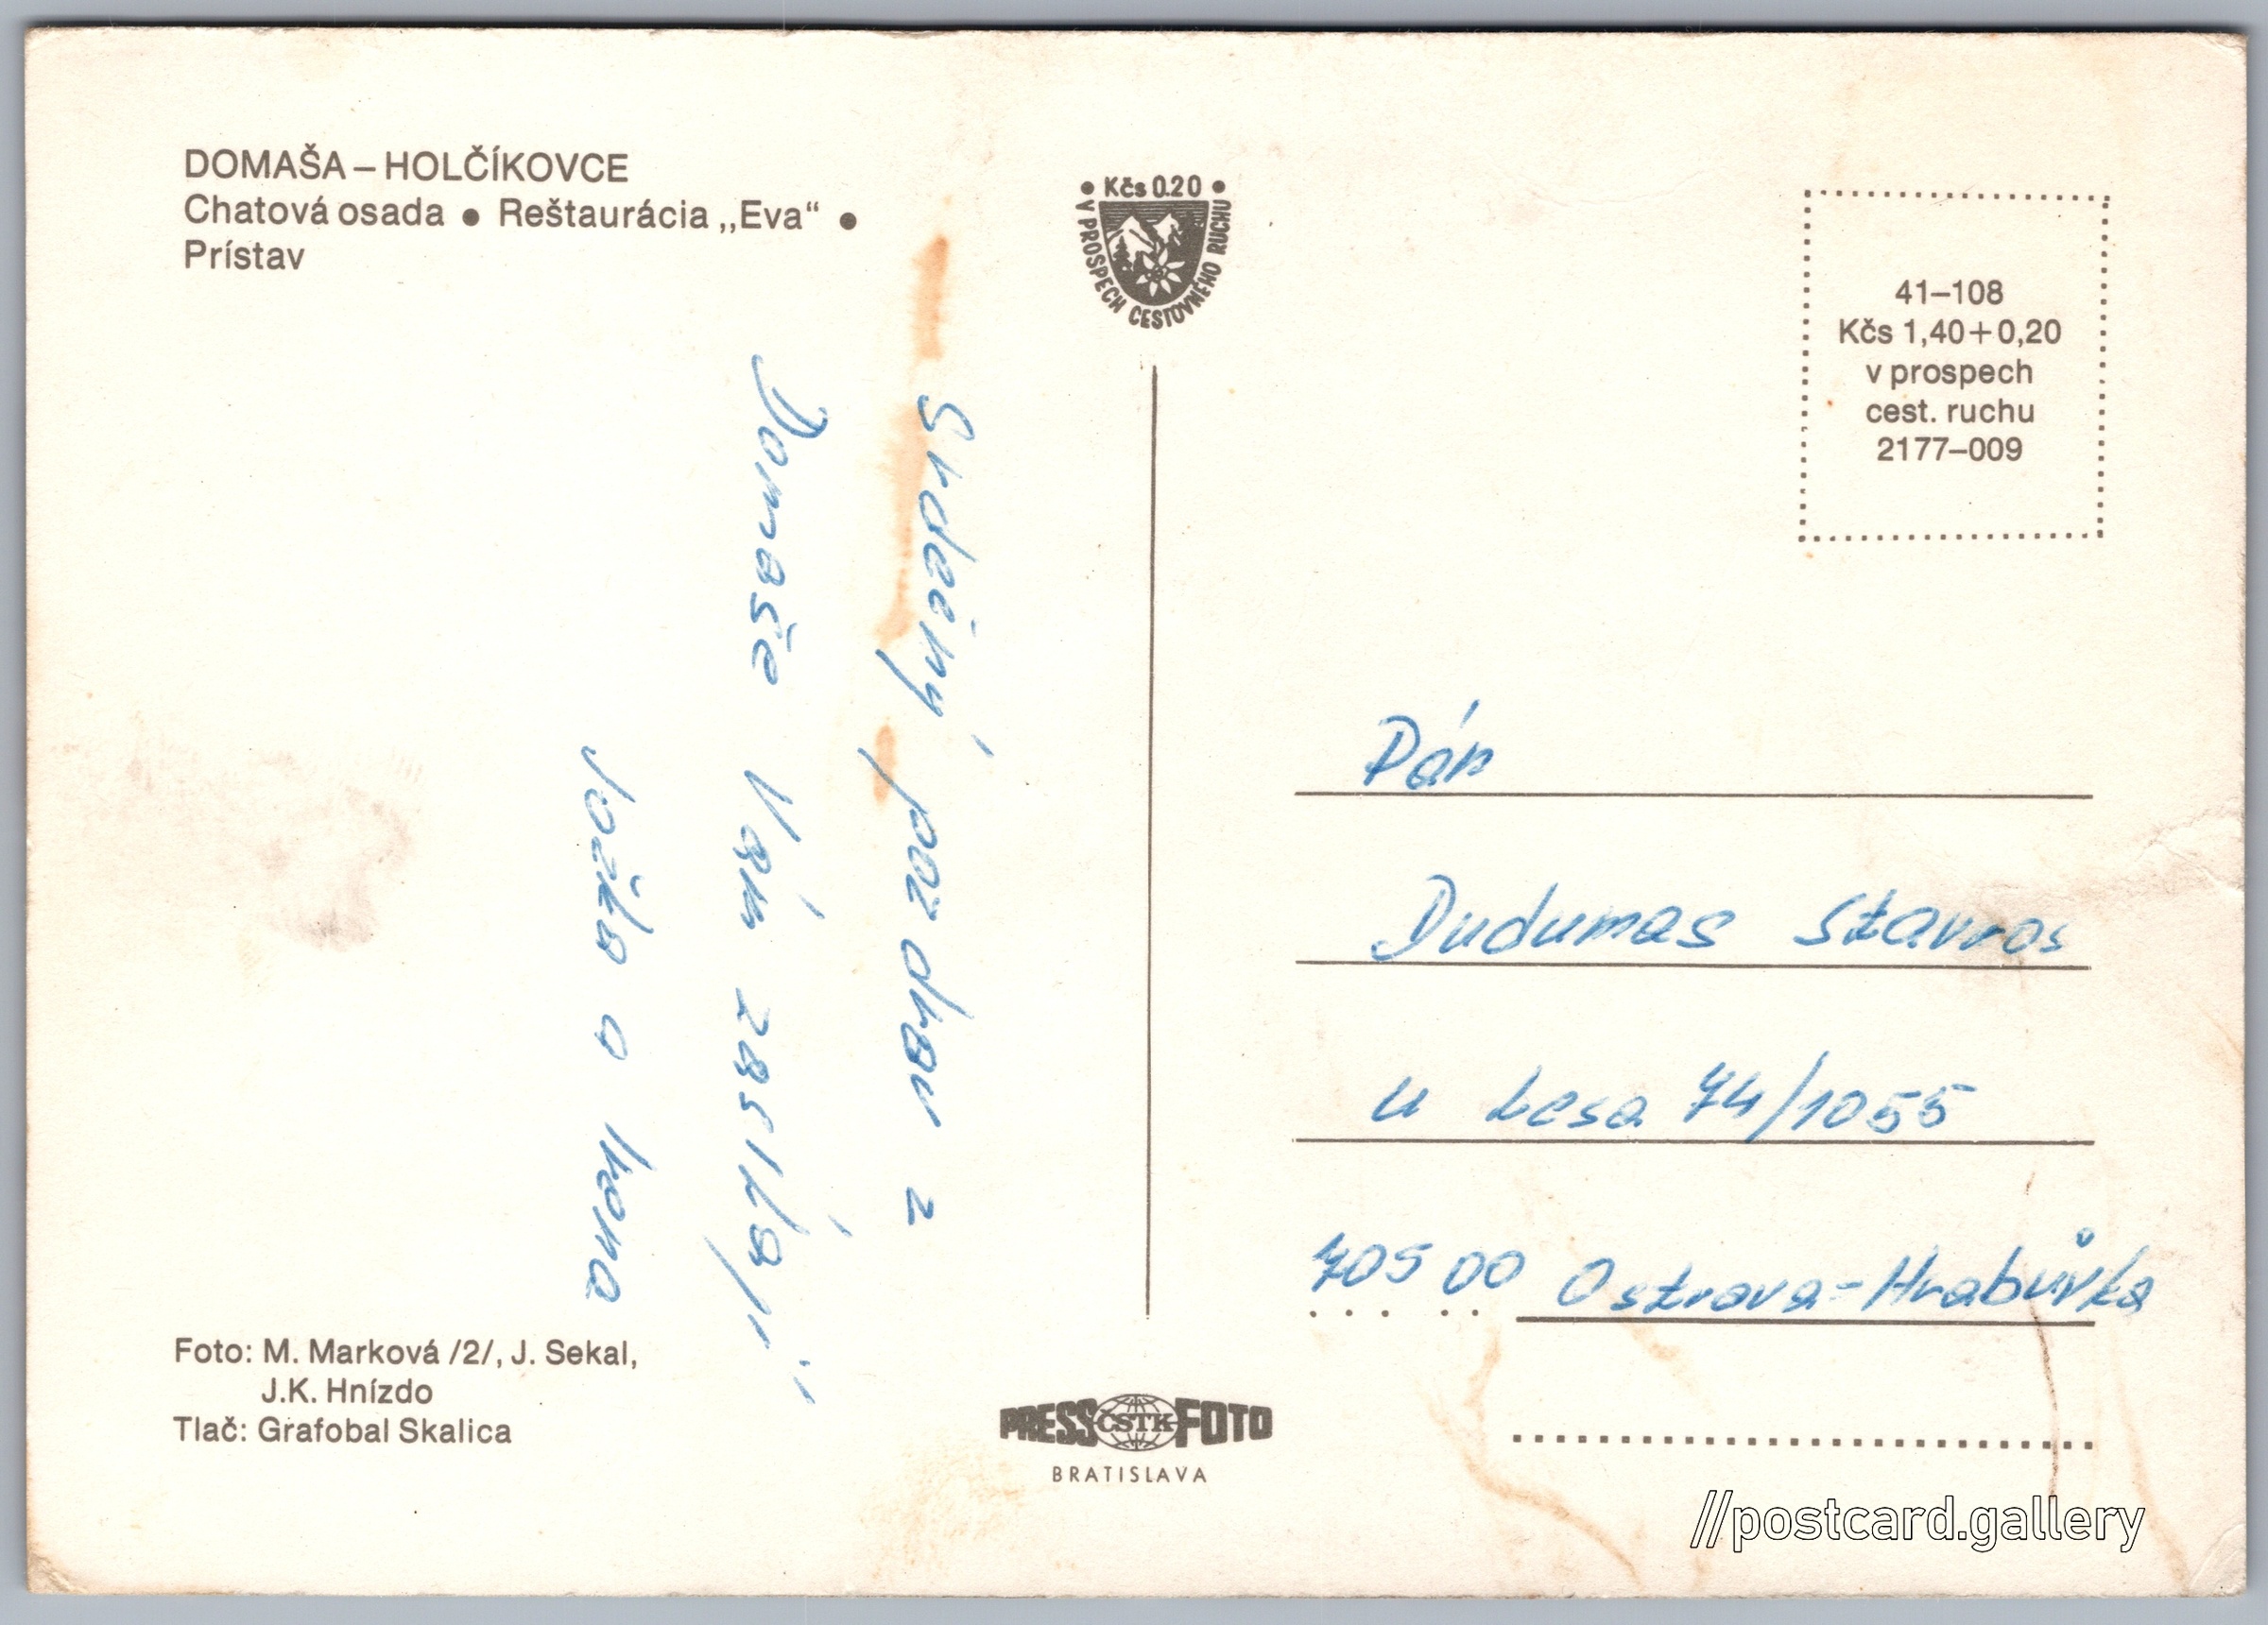 DOMAŠA – HOLČÍKOVCE
Chatová osada ● Reštaurácia „Eva“ ●
Prístav
Srdečný pozdrav z
Domaše Vám zasílají
Jožka a Irena
Foto: M. Marková /2/, J. Sekal,
J.K. Hnízdo
Tlač: Grafobal Skalica
• Kčs 0.20 •
V PROSPECH CESTOVNÉHO RUCHU
PRESS ČSTK FOTO
BRATISLAVA
41–108
Kčs 1,40+0,20
v prospech
cest. ruchu
2177–009
Pán
Dudumas Stavros
U Lesa 74/1055
705 00 Ostrava-Hrabůvka
//postcard.gallery